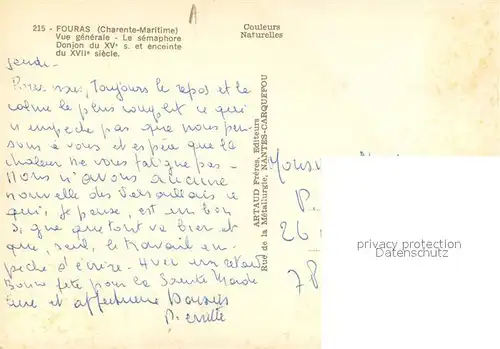 215 - FOURAS (Charente-Maritime)
Vue générale - Le sémaphore
Donjon du XVe s. et enceinte
du XVIIe siècle.
Couleurs
Naturelles
A
jeudi -
Pour nous, toujours le repos et le
calme le plus complet ce qui
n'empêche pas que nous pen-
sons à vous et espère que la
chaleur ne vous fatigue pas -
Nous n'avons aucune
nouvelle des Versaillais ce
qui, je pense, est un bon
signe que tout va bien et
que, seul, le travail em-
pêche d'écrire. Avec un retard
Bonne fête pour la Sainte Made
leine et affectueux Baisers
ARTAUD Frères, Editeurs
Rue de la Métallurgie, NANTES-CARQUEFOU
Mons
26
78
privacy protection
Datenschutz